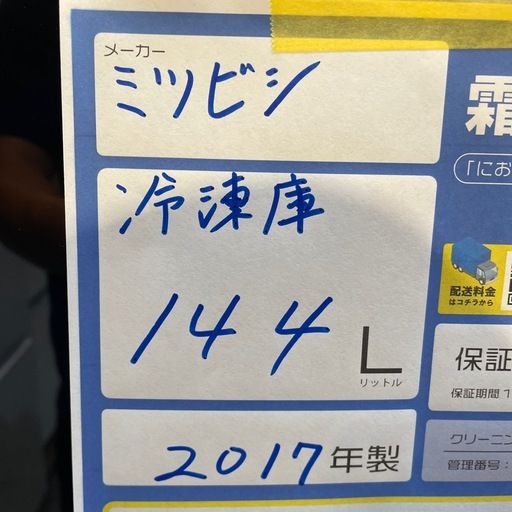 メーカー
ミツビシ
冷凍庫
144 L
リットル
2017年製
霜
「にお
配送料金
はコチラから
保証
保証期間 1
クリーニン
管理番号: